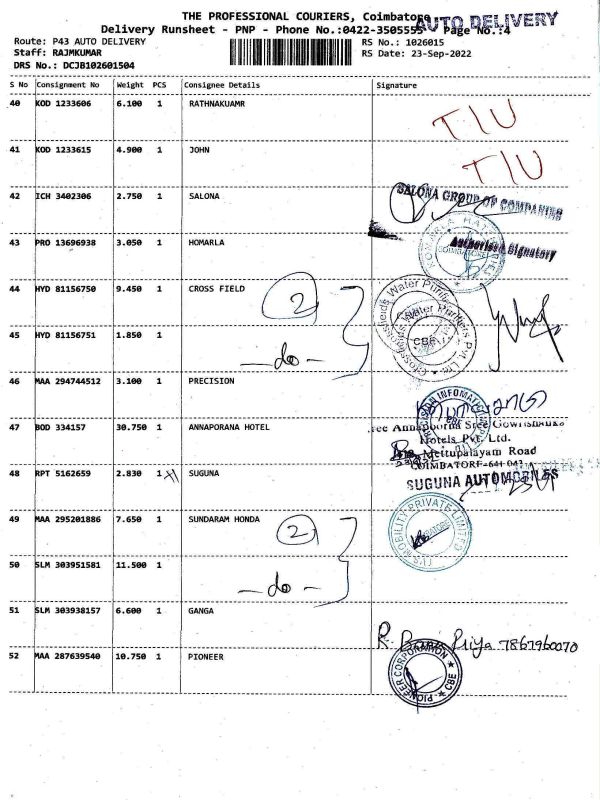 THE PROFESSIONAL COURIERS, Coimbatore
AUTO DELIVERY
Delivery Runsheet - PNP - Phone No.:0422-3505555 Page No.:4
Route: P43 AUTO DELIVERY RS No.: 1026015
Staff: RAJMKUMAR RS Date: 23-Sep-2022
DRS No.: DCJB102601504
S No Consignment No Weight PCS Consignee Details Signature
40 KOD 1233606 6.100 1 RATHNAKUAMR
T/U
41 KOD 1233615 4.900 1 JOHN
T/U
42 ICH 3402306 2.750 1 SALONA
SALONA GROUP OF COMPANIES
43 PRO 13696938 3.050 1 HOMARLA
Authorised Signatory
44 HYD 81156750 9.450 1 CROSS FIELD
2
Crossfields Water Purifiers Pvt. Ltd.
CBE
45 HYD 81156751 1.850 1
-do-
46 MAA 294744512 3.100 1 PRECISION
47 BOD 334157 30.750 1 ANNAPORANA HOTEL
Sree Annapoorna Sree Gowrishankar
Hotels Pvt. Ltd.
Mettupalayam Road
COIMBATORE-641 043
48 RPT 5162659 2.830 1 SUGUNA
SUGUNA AUTOMOBILES
49 MAA 295201886 7.650 1 SUNDARAM HONDA
2
TVS MOBILITY PRIVATE LIMITED
50 SLM 303951581 11.500 1
-do-
51 SLM 303938157 6.600 1 GANGA
R. Priya 7867960070
52 MAA 287639540 10.750 1 PIONEER
PIONEER CORPORATION
CBE